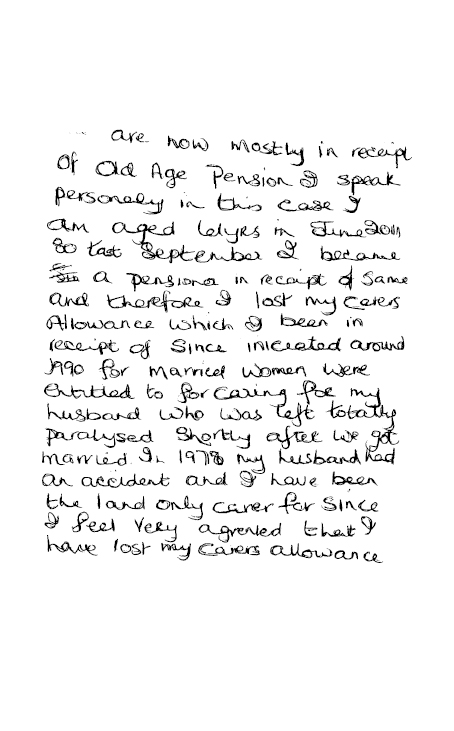 are now mostly in receipt
of Old Age Pension I speak
personaly in this case I
am aged 61yrs in June 2011
so last September I became
a pensioner in receipt of same
and therefore I lost my carers
Allowance which I been in
receipt of since inicrated around
1990 for married women were
entitled to for caring for my
husband who was left totally
paralysed shortly after we got
married. In 1978 my husband had
an accident and I have been
the 1 and only carer for since
I feel very agreved that I
have lost my carers allowance